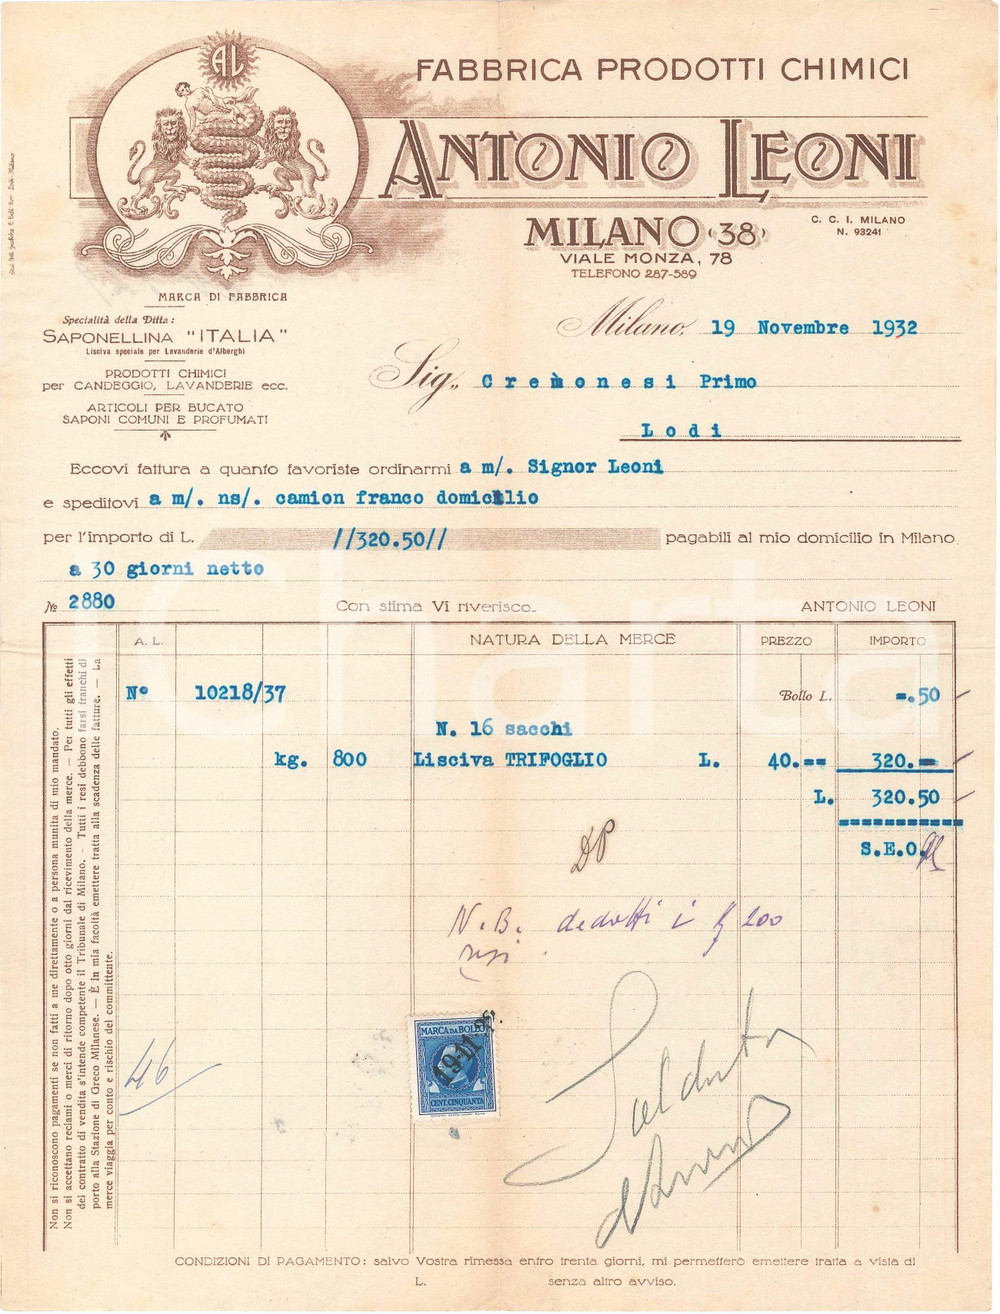 AL
FABBRICA PRODOTTI CHIMICI
ANTONIO LEONI
MILANO (38)
C. C. I. MILANO
N. 93241
VIALE MONZA, 78
TELEFONO 287-589
MARCA DI FABBRICA
Specialità della Ditta:
SAPONELLINA "ITALIA"
Lisciva speciale per Lavanderie d'Alberghi
PRODOTTI CHIMICI
per CANDEGGIO, LAVANDERIE ecc.
ARTICOLI PER BUCATO
SAPONI COMUNI E PROFUMATI
Milano, 19 Novembre 1932
Sig. Cremonesi Primo
Lodi
Eccovi fattura a quanto favoriste ordinarmi a m/. Signor Leoni
e speditovi a m/. ns/. camion franco domicilio
per l'importo di L. //320.50// pagabili al mio domicilio in Milano
a 30 giorni netto
№ 2880 Con stima Vi riverisco. ANTONIO LEONI
A. L. NATURA DELLA MERCE PREZZO IMPORTO
N° 10218/37 Bollo L. -.50
N. 16 sacchi
kg. 800 Lisciva TRIFOGLIO L. 40.-- 320.-
L. 320.50
S.E.O.
DP
N.B. dedotti i 200
resi.
MARCA DA BOLLO
19-11-
CENT. CINQUANTA
46
Saldata
Non si riconoscono pagamenti se non fatti a me direttamente o a persona munita di mio mandato.
Non si accettano reclami o merci di ritorno dopo otto giorni dal ricevimento della merce. — Per tutti gli effetti
del contratto di vendita s'intende competente il Tribunale di Milano. - Tutti i resi debbono farsi franchi di
porto alla Stazione di Greco Milanese. — È in mia facoltà emettere tratta alla scadenza delle fatture. — La
merce viaggia per conto e rischio del committente.
CONDIZIONI DI PAGAMENTO: salvo Vostra rimessa entro trenta giorni, mi permetterò emettere tratta a vista di
L. senza altro avviso.
iCharta